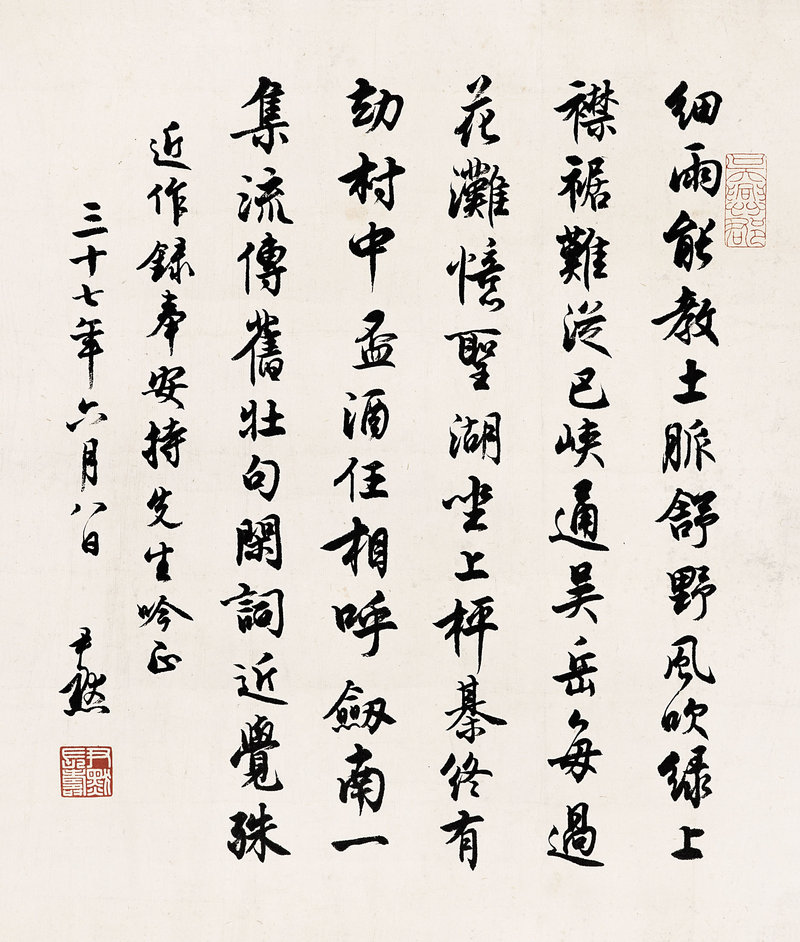 細雨能教土脈舒野風吹綠上
襟裾難從巴峽通吳岳每過
花灘憶聖湖坐上枰棊終有
劫村中盃酒任相呼劒南一
集流傳舊壯句閑詞近覺殊
近作録奉安持先生吟正
三十七年六月八日
尹默